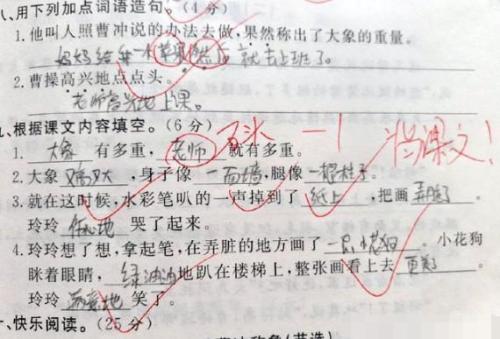 八、用下列加点词语造句。(4分)
1.他叫人照曹冲说的办法去做,果然称出了大象的重量。
妈妈给 一个苹果然后就去上班了。
2.曹操高兴地点点头。
老师高兴地上课。
九、根据课文内容填空。(6分) 石头 -1 当课文!
1. 大象 有多重, 老师 就有多重。
2.大象 又高又大 ,身子像 一面墙 ,腿像 一根柱子 。
3.就在这时候,水彩笔叭的一声掉到了 纸上 ,把画 弄脏了 。
玲玲 伤心地 哭了起来。
4.玲玲想了想,拿起笔,在弄脏的地方画了 一只小花狗 。小花狗
眯着眼睛, 绿油油地趴在楼梯上,整张画看上去 更好了 。
玲玲 满意地 笑了。
十、快乐阅读。(25分)